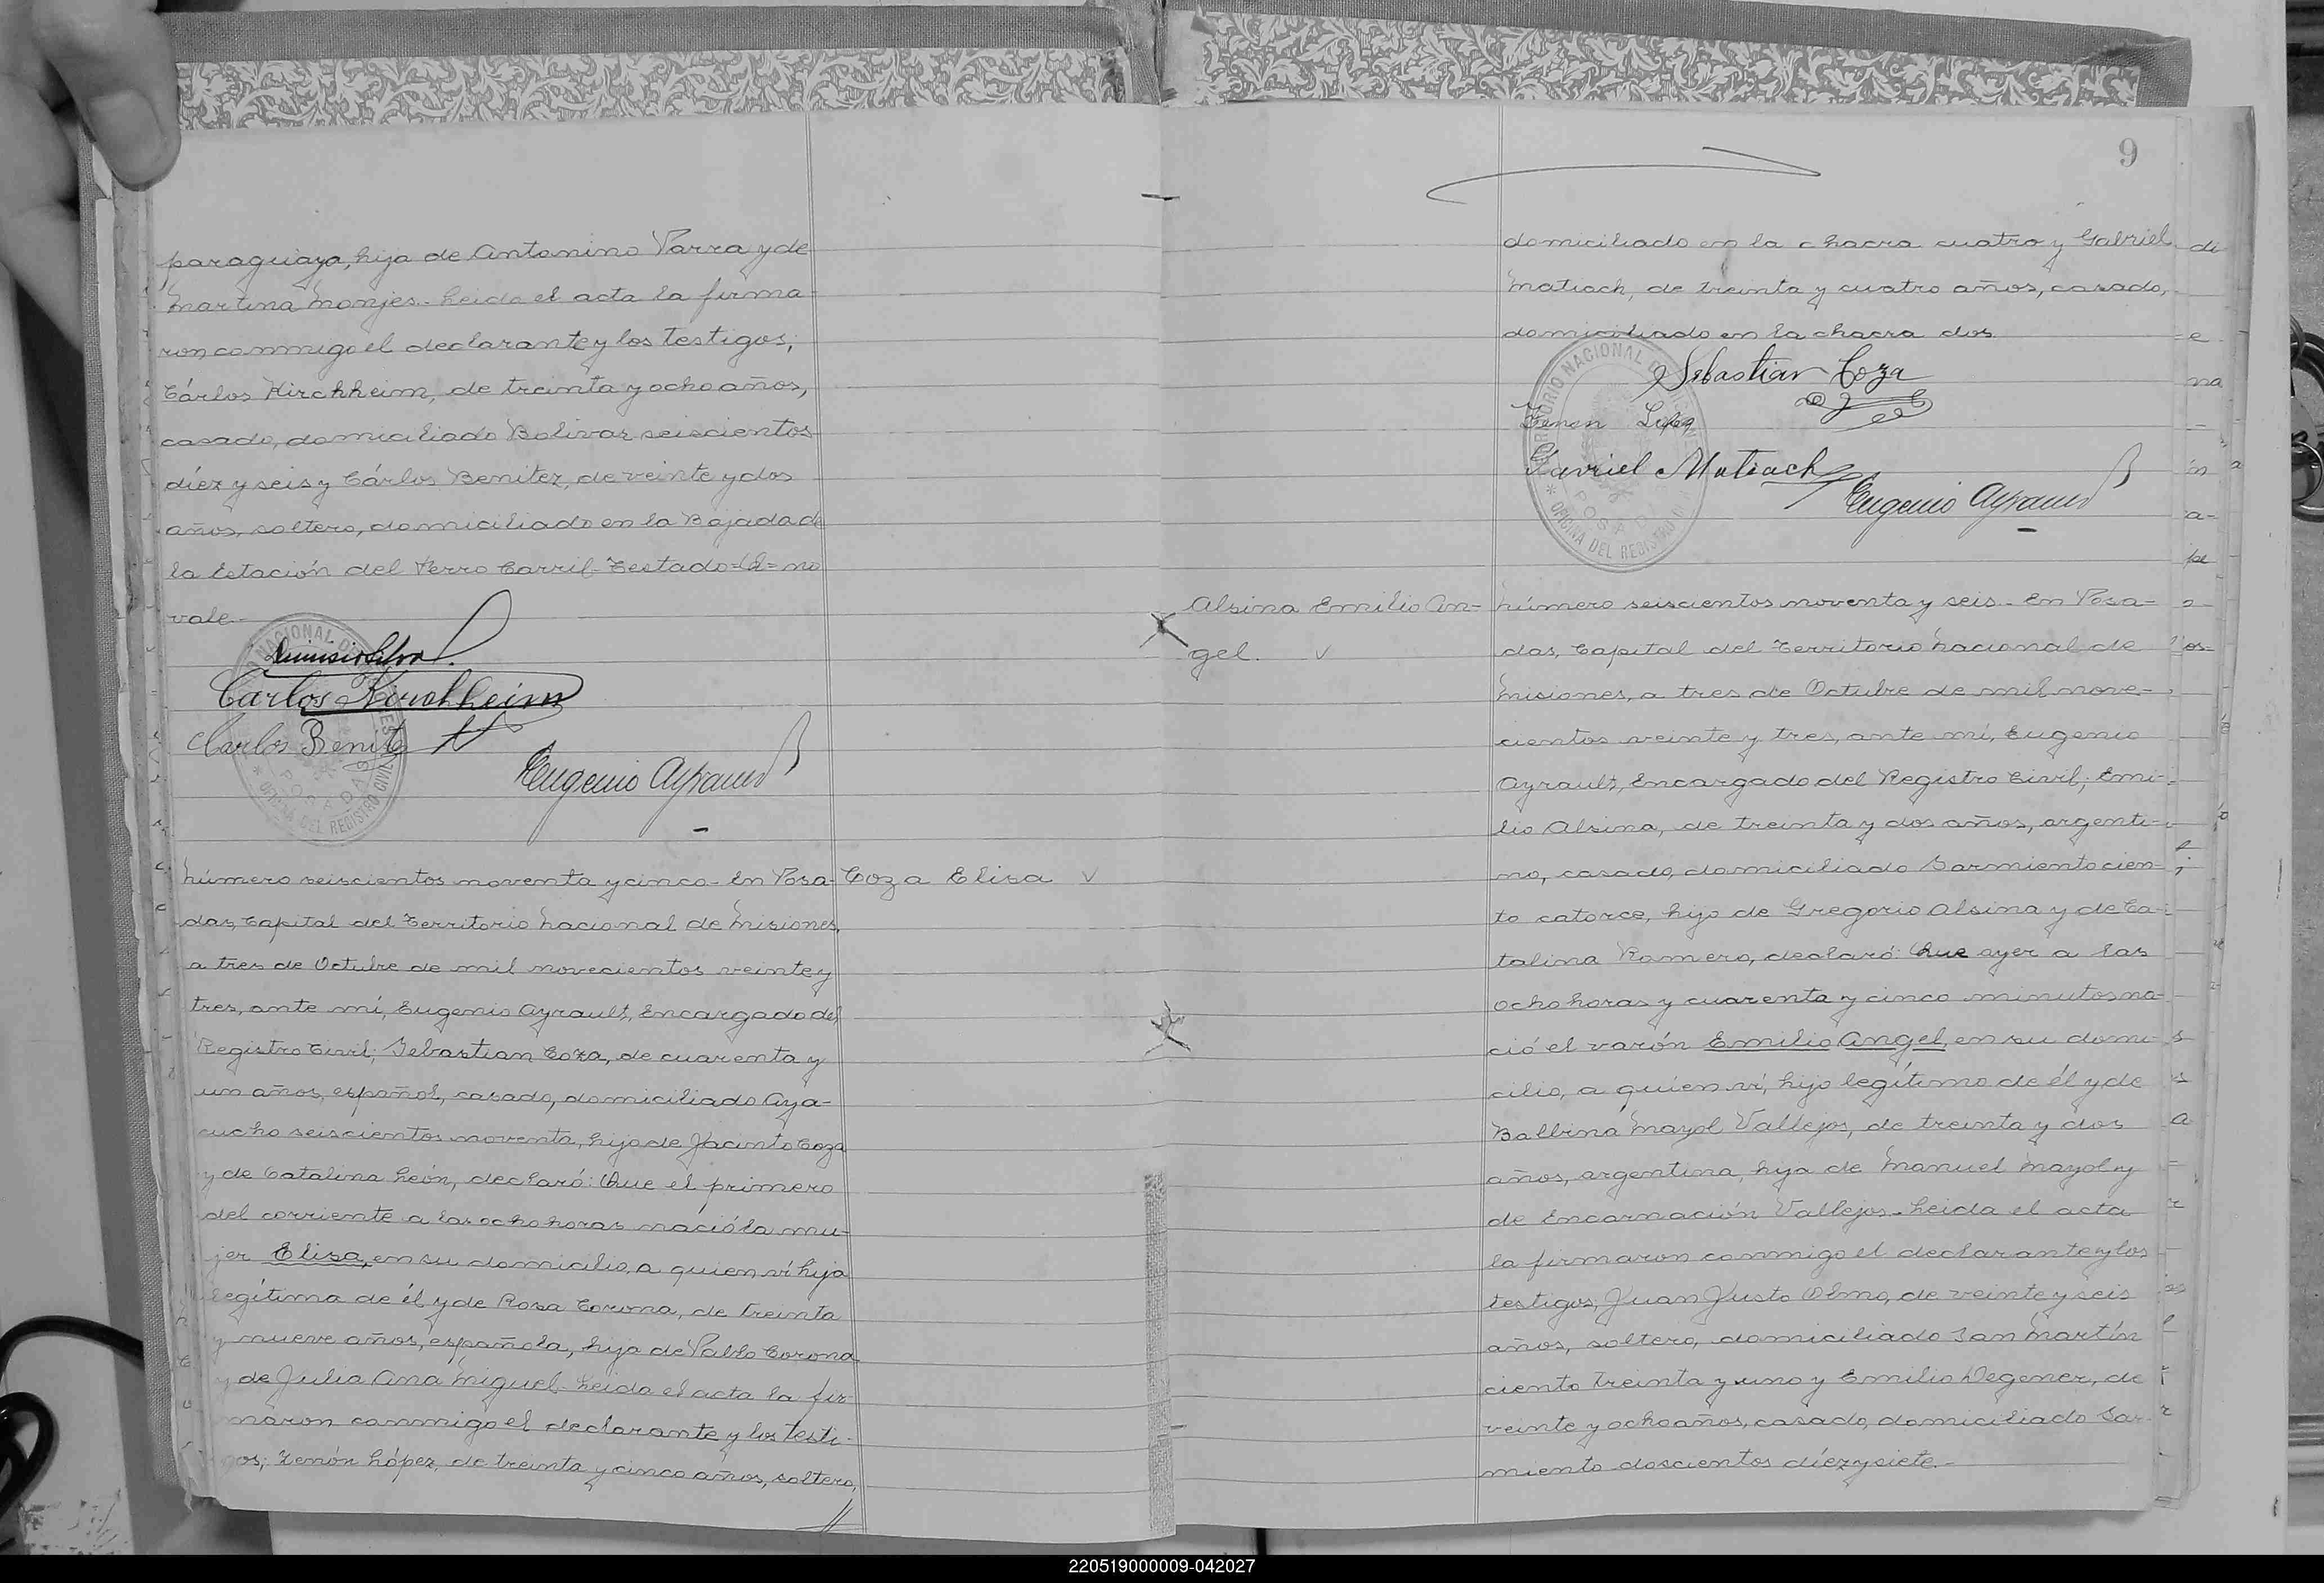 paraguaya, hija de Antonino Parra y de
Martina Monjes.- Leida el acta la firma-
ron conmigo el declarante y los testigos;
Cárlos Kirchheim, de treinta y ocho años,
casado, domiciliado Bolivar seiscientos
diéz y seis y Cárlos Benitez, de veinte y dos
años, soltero, domiciliado en la Bajada de
la Estación del Ferro Carril- Testado= = no
vale.-
Silva
Carlos Kirchheim
Carlos Benitez
Eugenio Ayrault
Número seiscientos noventa y cinco- En Posa-
Coza Elisa v
das, Capital del Territorio Nacional de Misiones,
a tres de Octubre de mil novecientos veinte y
tres, ante mí, Eugenio Ayrault, Encargado del
Registro Civil; Sebastian Coza, de cuarenta y
un años, español, casado, domiciliado Aya-
cucho seiscientos noventa, hijo de Jacinto Coza
y de Catalina León, declaró: Que el primero
del corriente a las ocho horas nació la mu-
jer Elisa, en su domicilio, a quien ví hija
legítima de él y de Rosa Corona, de treinta
y nueve años, española, hija de Pablo Corona
y de Julia Ana Miguel- Leida el acta la fir-
maron conmigo el declarante y los testi-
gos; Zenón López, de treinta y cinco años, soltero,
9
domiciliado en la chacra cuatro y Gabriel
Matiach, de treinta y cuatro años, casado,
domiciliado en la chacra dos
Sebastian Coza
Zenon Lopez
Gavriel Matiach
Eugenio Ayrault
TERRITORIO NACIONAL DE MISIONES
POSADAS
* OFICINA DEL REGISTRO CIVIL *
Alsina Emilio An-
gel. v
Número seiscientos noventa y seis.- En Posa-
das, Capital del Territorio Nacional de
Misiones, a tres de Octubre de mil nove-
cientos veinte y tres, ante mí, Eugenio
Ayrault, Encargado del Registro Civil; Emi-
lio Alsina, de treinta y dos años, argenti-
no, casado, domiciliado Sarmiento cien-
to catorce, hijo de Gregorio Alsina y de Ca-
talina Romero, declaró: Que ayer a las
ocho horas y cuarenta y cinco minutos na-
ció el varón Emilio Angel, en su domi-
cilio, a quien ví, hijo legítimo de él y de
Balbina Mayol Vallejos, de treinta y dos
años, argentina, hija de Manuel Mayol y
de Encarnación Vallejos.- Leida el acta
la firmaron conmigo el declarante y los
testigos, Juan Justo Olmo, de veinte y seis
años, soltero, domiciliado San Martín
ciento treinta y uno y Emilio Degener, de
veinte y ocho años, casado, domiciliado Sar-
miento doscientos diéz y siete.-
220519000009-042027